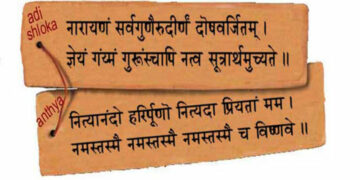 adi
shloka
नारायणं सर्वगुणैरुदीर्णं दोषवर्जितम् ।
ज्ञेयं गंय्मं गुरूंस्चापि नत्व सूत्रार्थमुच्यते ॥
anthya
नित्यानंदो हरिर्पूणो नित्यदा प्रियतां मम ।
नमस्तस्मै नमस्तस्मै नमस्तस्मै च विष्णवे ॥